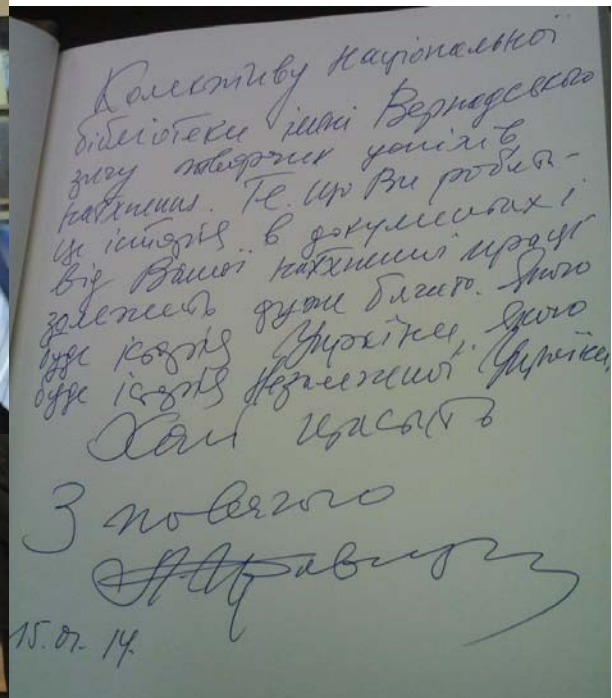 Колективу Національної
бібліотеки імені Вернадського
зичу творчих успіхів,
натхнення. Те, що Ви робите -
це історія в документах і
від Вашої натхненної праці
залежить дуже багато. Якою
буде історія України, якою
буде історія Незалежної України.
Хай щастить
З повагою
15.01.14.